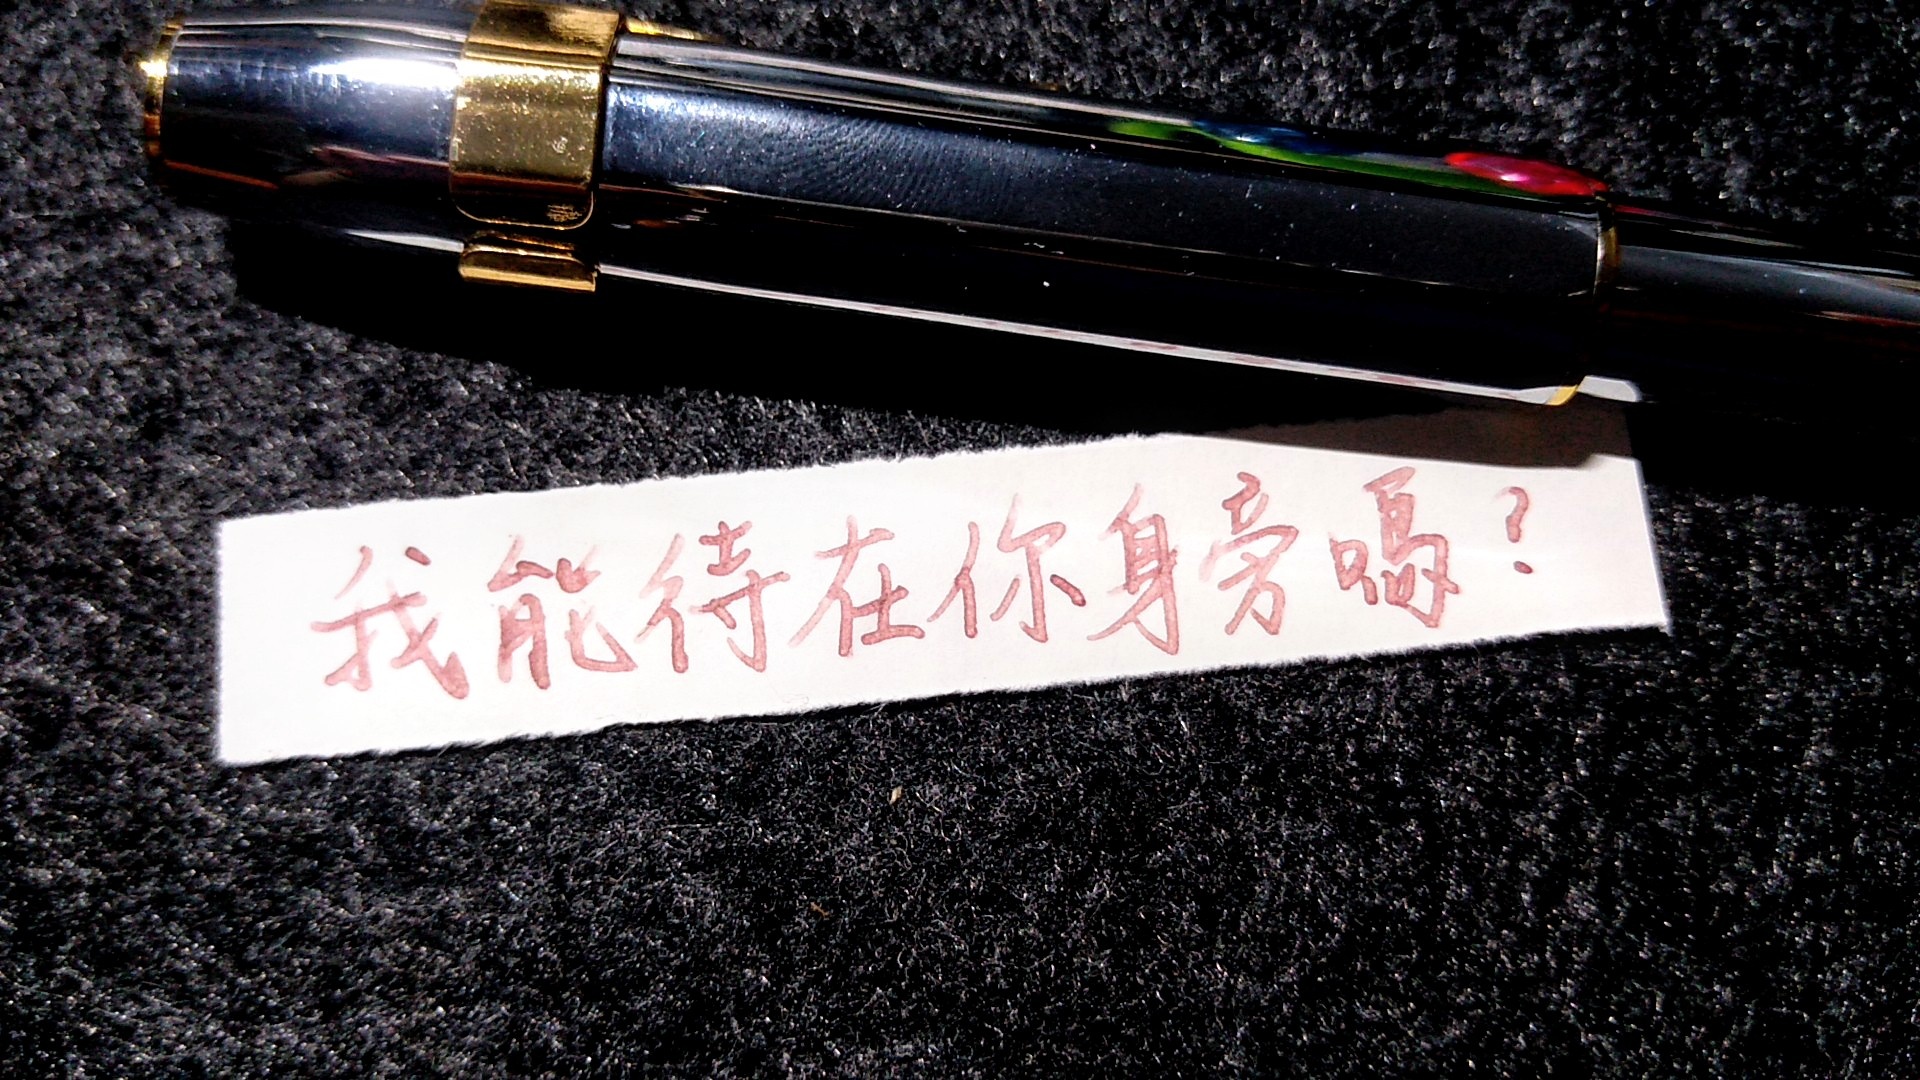 我能待在你身旁嗎？